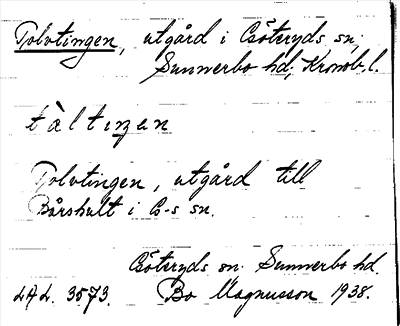 Tolvtingen, utgård i Göteryds sn,
Sunnerbo hd, Kronob. l.
tàltiŋen
Tolvtingen, utgård till
Bårshult i G-s sn.
Göteryds sn. Sunnerbo hd.
LAL. 3573. Bo Magnusson 1938.